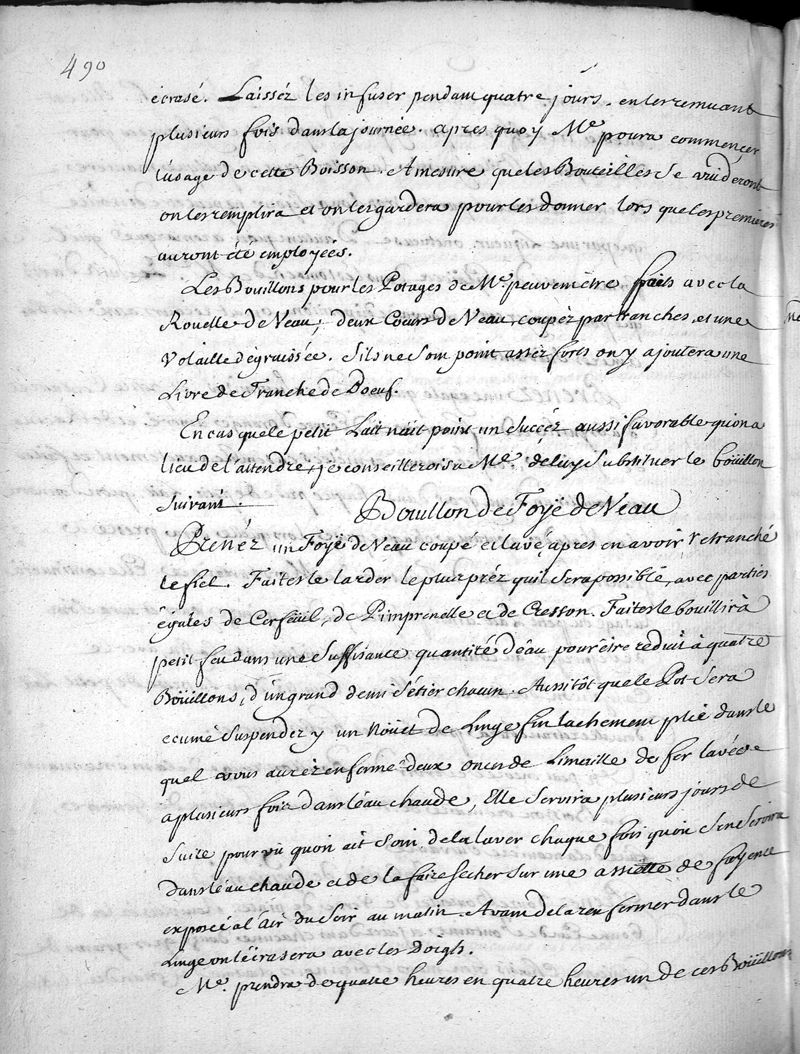 490
écrasé. Laisséz les infuser pendant quatre jours, en les remuant
plusieurs fois dans la journée. apres quoy Me. poura commencer
l'usage de cette Boisson. Amesure que les Bouteilles se vuideront
on les remplira et on les gardera pour les donner lors que les premieres
auront été employées.
Les Bouillons pour les Potages de Me. peuvent être faits avec la
Rouelle de Veau, deux Cœurs de Veau coupéz par tranches, et une
Volaille dégraissée. S'ils ne sont point assez forts on y ajoutera une
Livre de Tranche de Boeuf.
En cas que le petit Lait n'ait point un Succéz aussi favorable qu'on a
lieu de l'attendre, je conseillerois a Me. de luy Substituer le boüillon
suivant.
Bouillon de Foÿe de Veau
Prenéz un Foÿe de Veau coupé et lavé apres en avoir retranché
le fiel. Faites le larder le plus préz qu'il sera possible, avec parties
égales de Cerfeüil, de Pimprenelle et de Cresson. Faites le bouillir à
petit feu dans une suffisance quantité d'éau pour être reduit à quatre
Boüillons, d'un grand demi Sétier chacun. Aussitôt que le Pot sera
ecumé suspendez y un Noüet de Linge fin lachement plié dans le
quel vous aurez enfermé deux onces de Limaille de fer lavée
a plusieurs fois dans l'éau chaude. Elle servira plusieurs jours de
suite pour vû qu'on ait soin de la laver chaque fois qu'on s'en servira
dans l'éau chaude et de la faire secher sur une assiette de fayence
exposée à l'air du Soir au matin. Avant de la renfermer dans le
Linge on l'écrasera avec les Doigts.
Me. prendra de quatre heures en quatre heures un de ces Boüillons